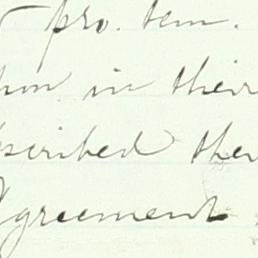 pro. tem.
in their
scribed the
Agreement